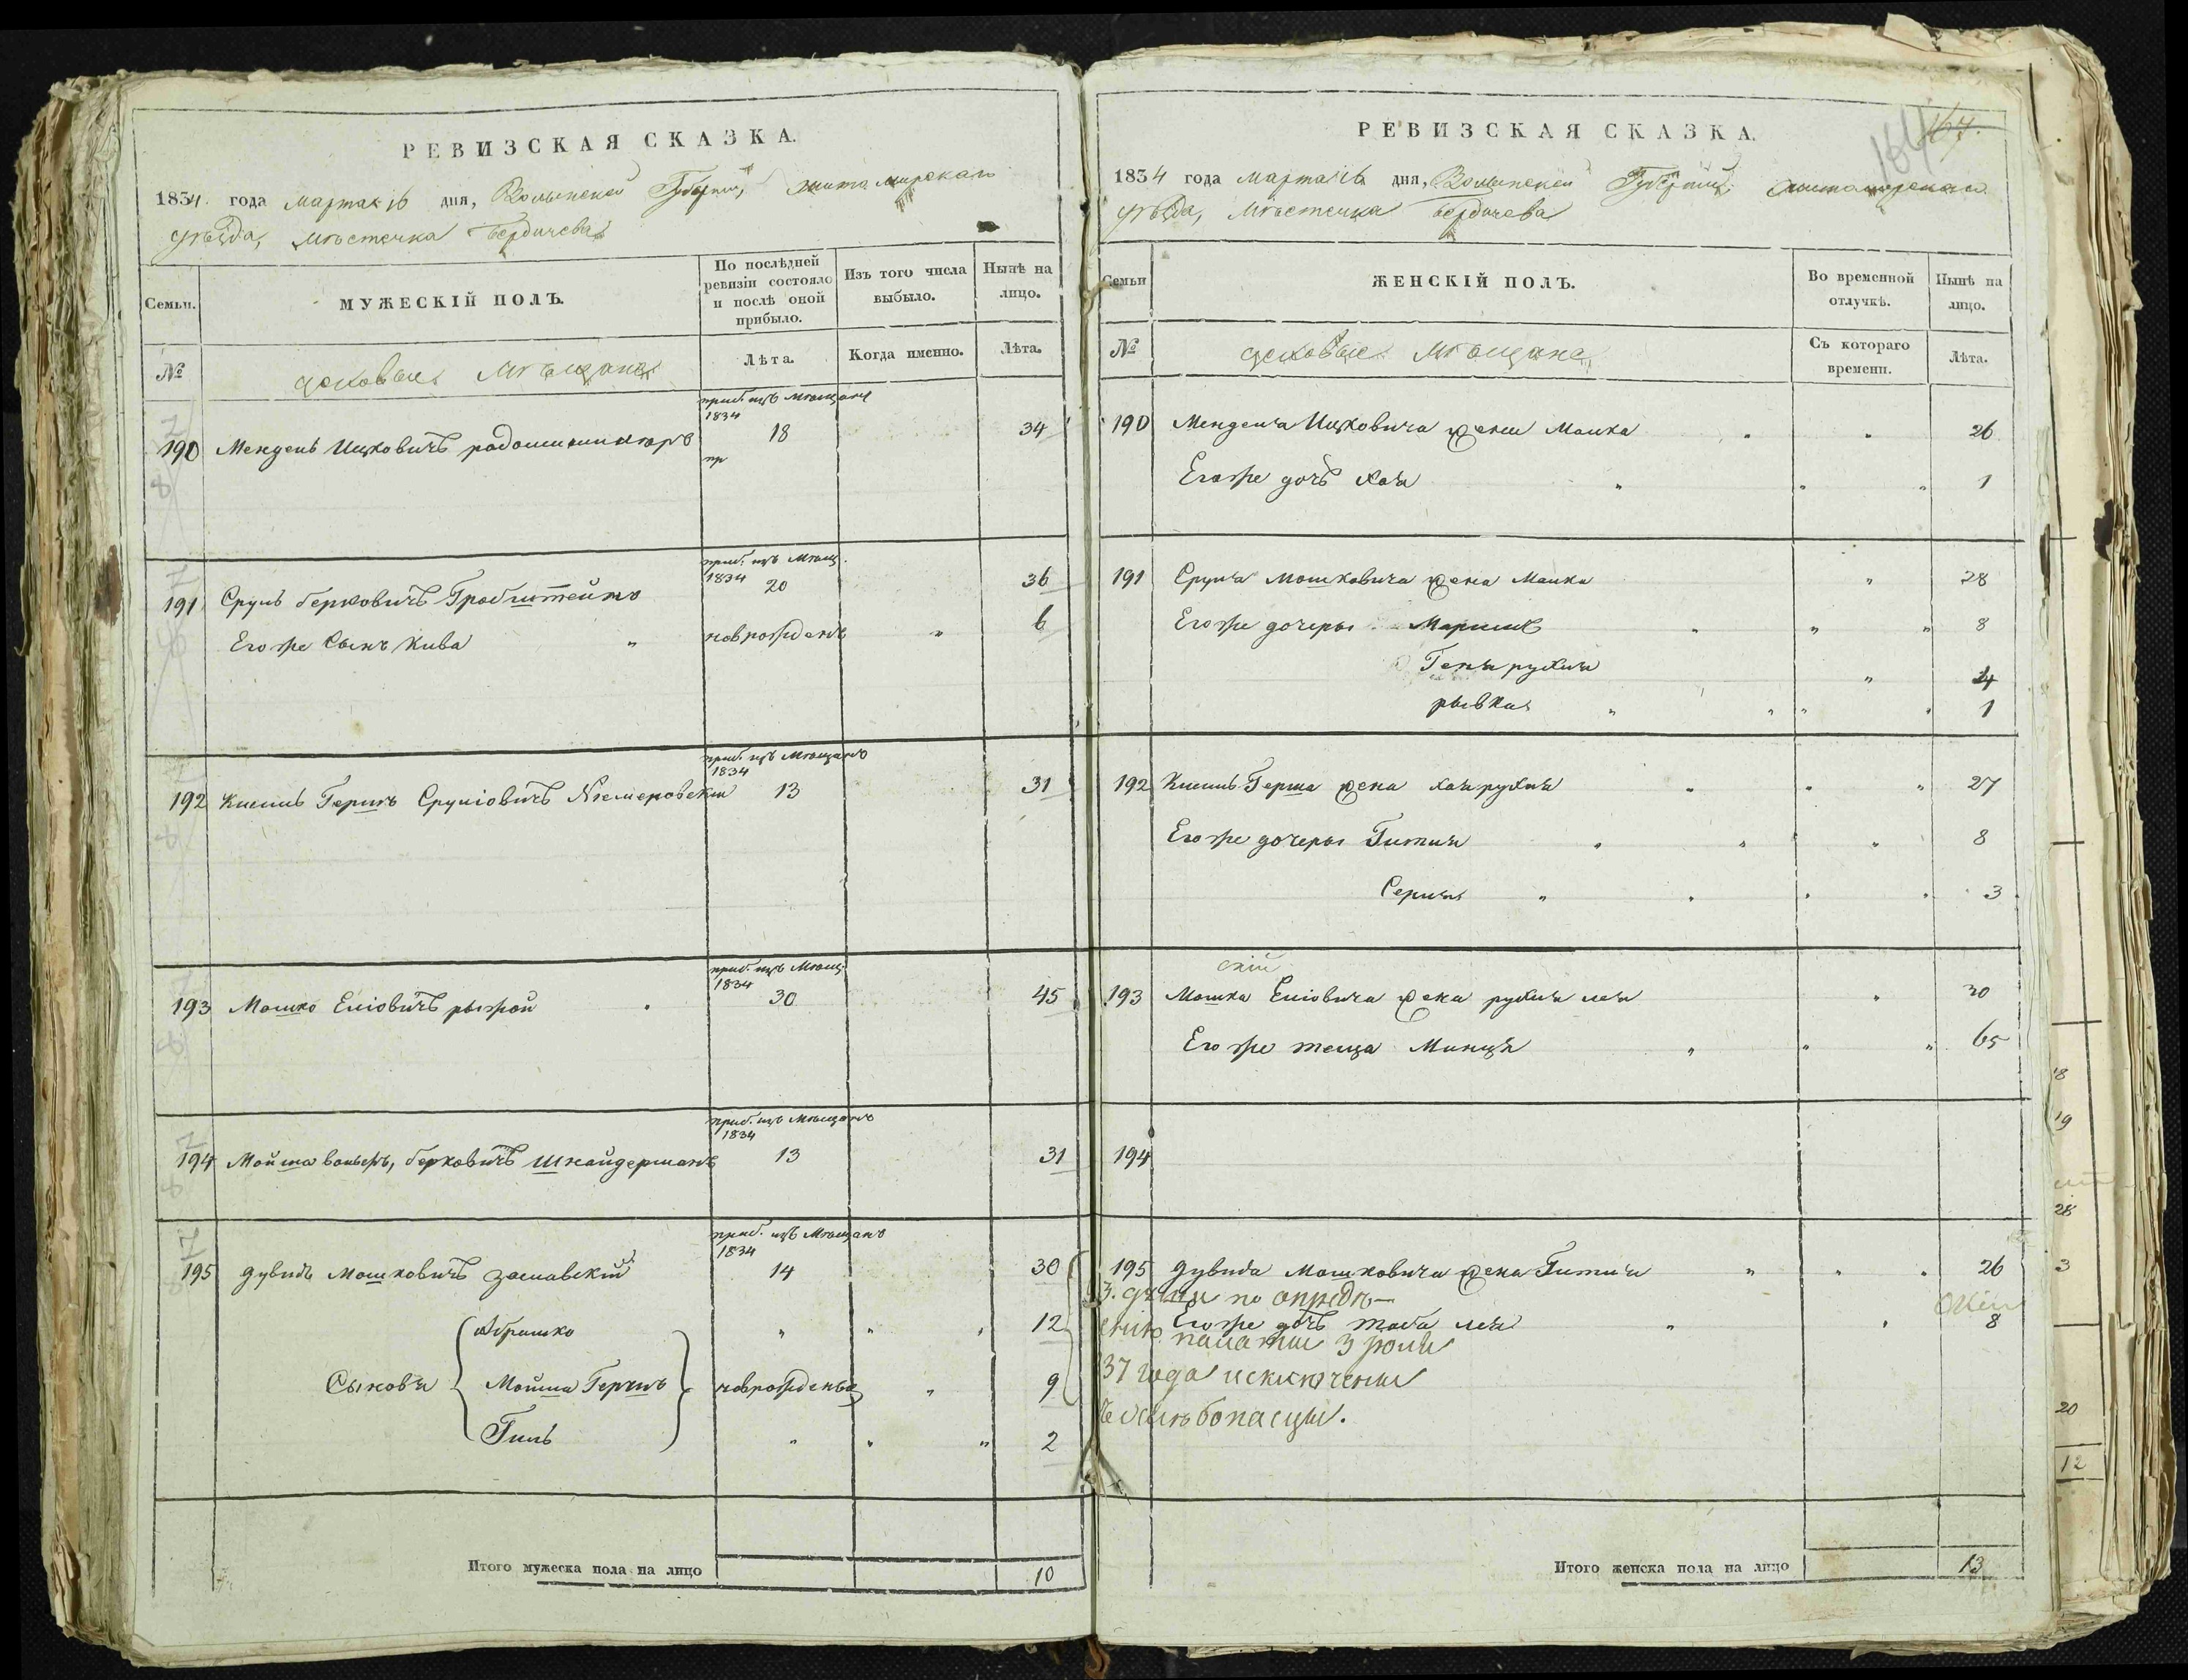 РЕВИЗСКАЯ СКАЗКА.
1834 года Марта 16 дня, Волынской Губерніи, Житомирскаго
уѣзда, мѣстечка Бердичева
Семьи. МУЖЕСКІЙ ПОЛЪ. По послѣдней ревизіи состояло и послѣ оной прибыло. Изъ того числа выбыло. Нынѣ на лицо.
№ цеховые Мѣщане Лѣта. Когда именно. Лѣта.
приб. изъ Мѣщанъ
1834
190 Мендель Ицковичъ 18 34
пр
приб. изъ Мѣщ.
1834
191 Сруль Берковичъ Грабштейнъ 20 36
Его же Сынъ Кива новрожденъ 6
приб. изъ Мѣщанъ
1834
192 Кисиль Гершъ Сруліовичъ Немеровскій 13 31
приб. изъ Мѣщ.
1834
193 Мошко Еліовичъ рыжой 30 45
приб. изъ Мѣщанъ
1834
194 Мойша вольфъ, берковичъ Шнайдерманъ 13 31
приб. изъ Мѣщанъ
1834
195 Дувидъ Мошковичъ Заславскій 14 30
Абрашко 12
Сыновья Мойша Гершъ новрожденые 9
Гиль 2
Итого мужеска пола на лицо 10
РЕВИЗСКАЯ СКАЗКА.
164 167.
1834 года Марта 16 дня, Волынской Губерніи, Житомирскаго
уѣзда, Мѣстечка Бердичева
Семьи ЖЕНСКІЙ ПОЛЪ. Во временной отлучкѣ. Нынѣ на лицо.
№ цеховые Мѣщане Съ котораго времени. Лѣта.
190 Менделя Ицковича жена Малка 26
Его же дочь Хая 1
191 Сруля Мошковича жена Малка 28
Его же дочеры 8
Геня рухля 4
рывка 1
192 Кисиль Герша жена хая рухля 27
Его же дочеры Гитля 8
Серля 3
193 Мошка Еліовича жена рухля лея 30
Его же теща Минця 65
194
195 Дувида Мошковича жена Гитля 26
3. души по опредѣ-
Его же дочь Таба лея 8
ленію палаты 3 Іюля
37 года исключены
въ хлѣбопасцы.
Итого женска пола на лицо 13